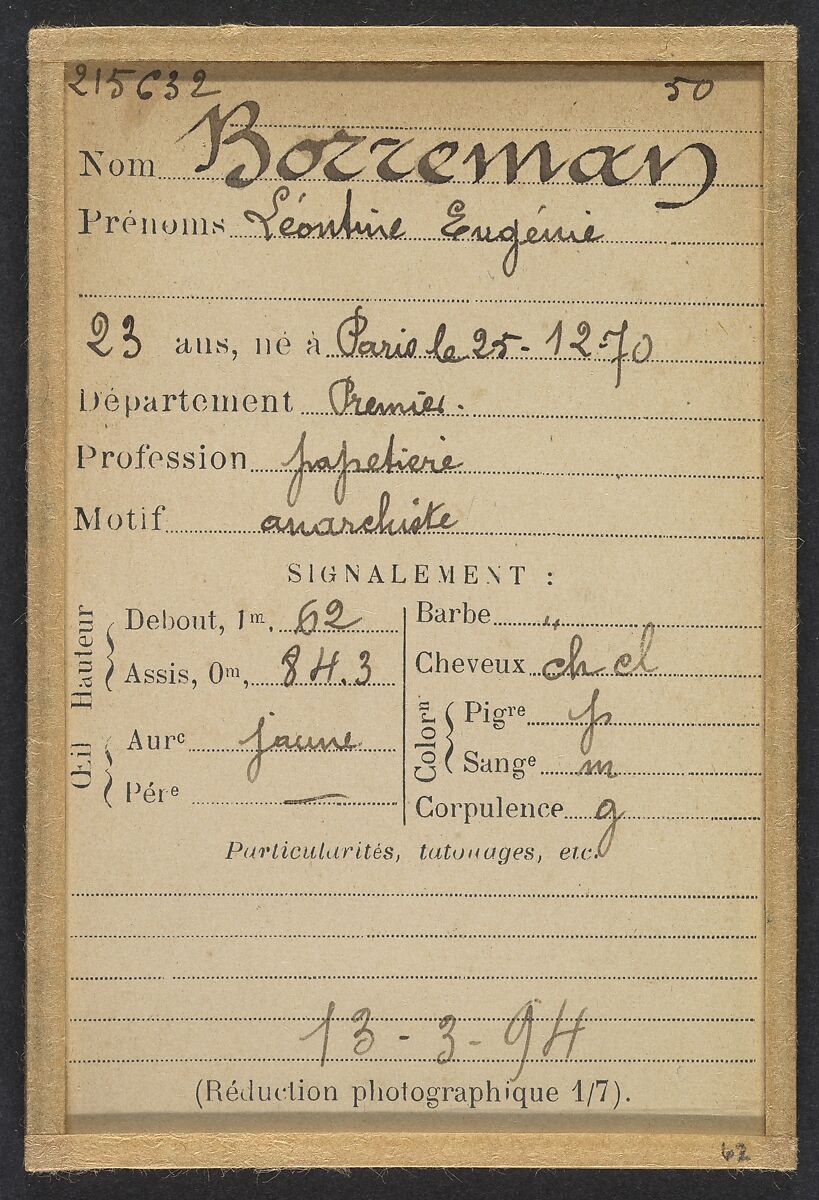 215632 50
Nom Borreman
Prénoms Léontine Eugénie
23 ans, né à Paris le 25-12-70
Département Premier.
Profession papetière
Motif anarchiste
SIGNALEMENT :
Hauteur
Debout, 1m, 62
Assis, 0m, 84.3
Œil
Aurc jaune
Pére —
Barbe „
Cheveux ch cl
Colorn
Pigre p
Sange m
Corpulence g
Particularités, tatouages, etc.
13-3-94
(Réduction photographique 1/7).
62